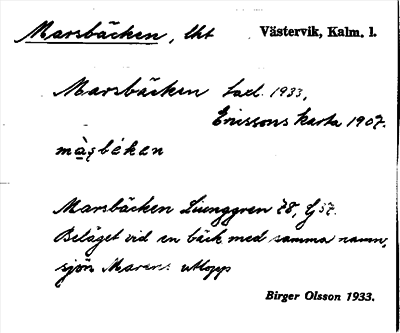 Marsbäcken, lht Västervik, Kalm. l.
Marsbäcken Saxl. 1933,
Ericssons karta 1907.
Marsbäcken Liunggren 78, G 57.
Beläget vid en bäck med samma namn,
sjön Marens utlopp
Birger Olsson 1933.